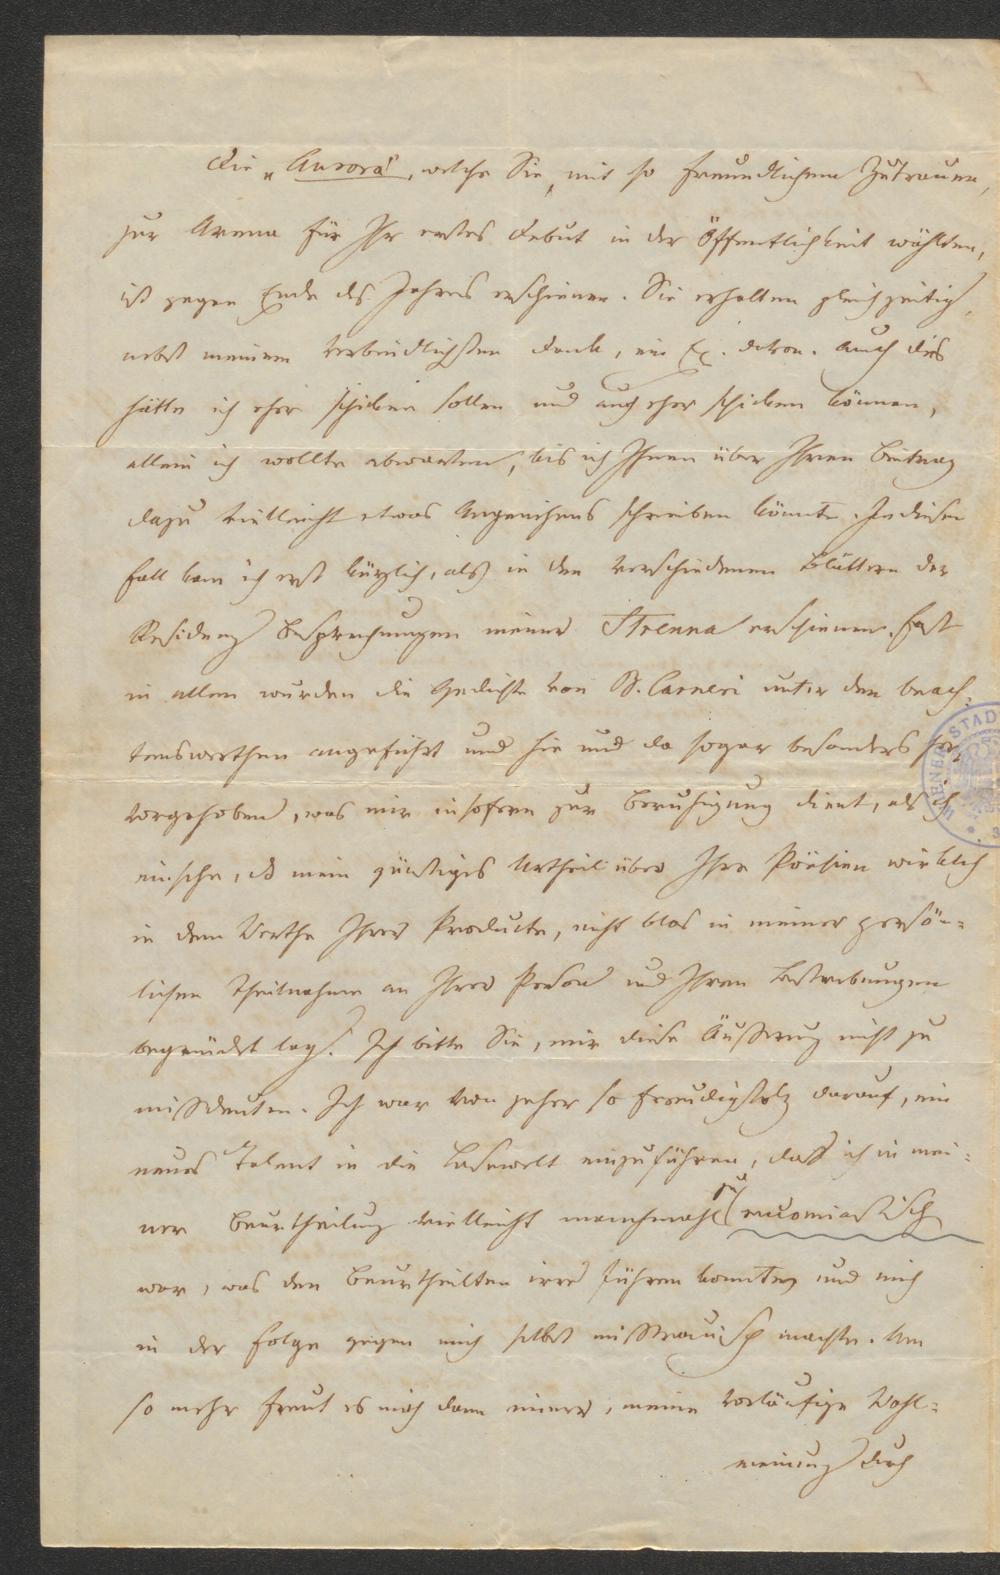 Die „Aurora“, welche Sie, mit so freundlichem Zutrauen,
zur Arena für Ihr erstes Debut in der Öffentlichkeit wählten,
ist gegen Ende des Jahres erschienen. Sie erhalten gleichzeitig,
nebst meinem verbindlichsten Dank, ein Ex. davon. Auch dies
hätte ich eher schicken sollen und auch eher schicken können,
allein ich wollte abwarten, bis ich Ihnen über Ihren Beitrag
dazu vielleicht etwas Angenehmes schreiben könnte. In diesen
Fall kam ich erst kürzlich, als in den verschiedenen Blättern der
Residenz Besprechungen meiner Strenna erschienen. Fast
in allen wurden die Gedichte von B. Carneri unter den beach-
tenswerthen angeführt und hie und da sogar besonders her-
vorgehoben, was mir insofern zur Beruhigung dient, als ich
einsehe, daß mein günstiges Urtheil über Ihre Poësien wirklich
in dem Werthe Ihrer Producte, nicht blos in meiner persön-
lichen Theilnahme an Ihrer Person und Ihren Bestrebungen
begründet lag. Ich bitte Sie, mir diese Äußerung nicht zu
mißdeuten. Ich war von jeher so freudigstolz darauf, ein
neues Talent in die Lesewelt einzuführen, daß ich in mei-
ner Beurtheilung vielleicht manchmahl zu encomiastisch
war, was den Beurtheilten irre führen konnte und mich
in der Folge gegen mich selbst mißtrauisch machte. Um
so mehr freut es mich dann immer, meine vorläufige Wohl-
meinung durch
WIENER STAD